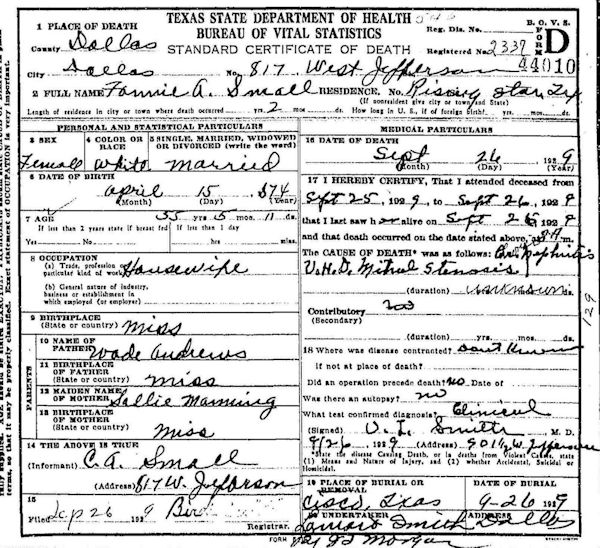 TEXAS STATE DEPARTMENT OF HEALTH
BUREAU OF VITAL STATISTICS
STANDARD CERTIFICATE OF DEATH
B. O. V. S.
FORM D
Reg. Dis. No.
Registered No. 2339
44010
1 PLACE OF DEATH
County Dallas
City Dallas No. 817 West Jefferson
2 FULL NAME Fannie A. Small RESIDENCE. No. Rising Star, Tex
(If nonresident give city or town and State)
Length of residence in city or town where death occurred yrs. 2 mos. ds. How long in U. S., if of foreign birth? yrs. mos. ds.
PERSONAL AND STATISTICAL PARTICULARS
3 SEX
Female
4 COLOR OR RACE
White
5 SINGLE, MARRIED, WIDOWED OR DIVORCED (write the word)
Married
6 DATE OF BIRTH
April 15 1874
(Month) (Day) (Year)
7 AGE 55 yrs 5 mos 11 ds.
If less than 2 years state if breast fed If less than 1 day
Yes No hrs. min.
8 OCCUPATION
(a) Trade, profession or
particular kind of work Housewife
(b) General nature of industry,
business or establishment in
which employed (or employer)
9 BIRTHPLACE
(State or country) Miss
PARENTS
10 NAME OF
FATHER Wade Andrews
11 BIRTHPLACE
OF FATHER
(State or country) Miss
12 MAIDEN NAME
OF MOTHER Sallie Manning
13 BIRTHPLACE
OF MOTHER
(State or country) Miss
14 THE ABOVE IS TRUE
(Informant) C.A. Small
(Address) 817 W. Jefferson
15
Filed Sep 26 1929
Registrar.
MEDICAL PARTICULARS
16 DATE OF DEATH
Sept 26 1929
(Month) (Day) (Year)
17 I HEREBY CERTIFY, That I attended deceased from
Sept 25, 1929 to Sept 26, 1929
that I last saw her alive on Sept 26 1929
and that death occurred on the date stated above, at m.
The CAUSE OF DEATH* was as follows: Chr. Nephritis
V.H.D. Mitral Stenosis
(duration) unknown ds.
Contributory no
(Secondary)
(duration) yrs. mos. ds.
18 Where was disease contracted? Dont Know
if not at place of death?
Did an operation precede death? No Date of
Was there an autopsy? no
What test confirmed diagnosis? Clinical
(Signed) Smith M. D.
9/26 1929 (Address) 901½ W. Jefferson
*State the disease Causing Death, or in deaths from Violent Causes, state
(1) Means and Nature of Injury, and (2) whether Accidental, Suicidal or
Homicidal.
19 PLACE OF BURIAL OR REMOVAL
Cisco Texas
DATE OF BURIAL
9-26 1929
20 UNDERTAKER
Lamar & Smith
ADDRESS
Dallas
129